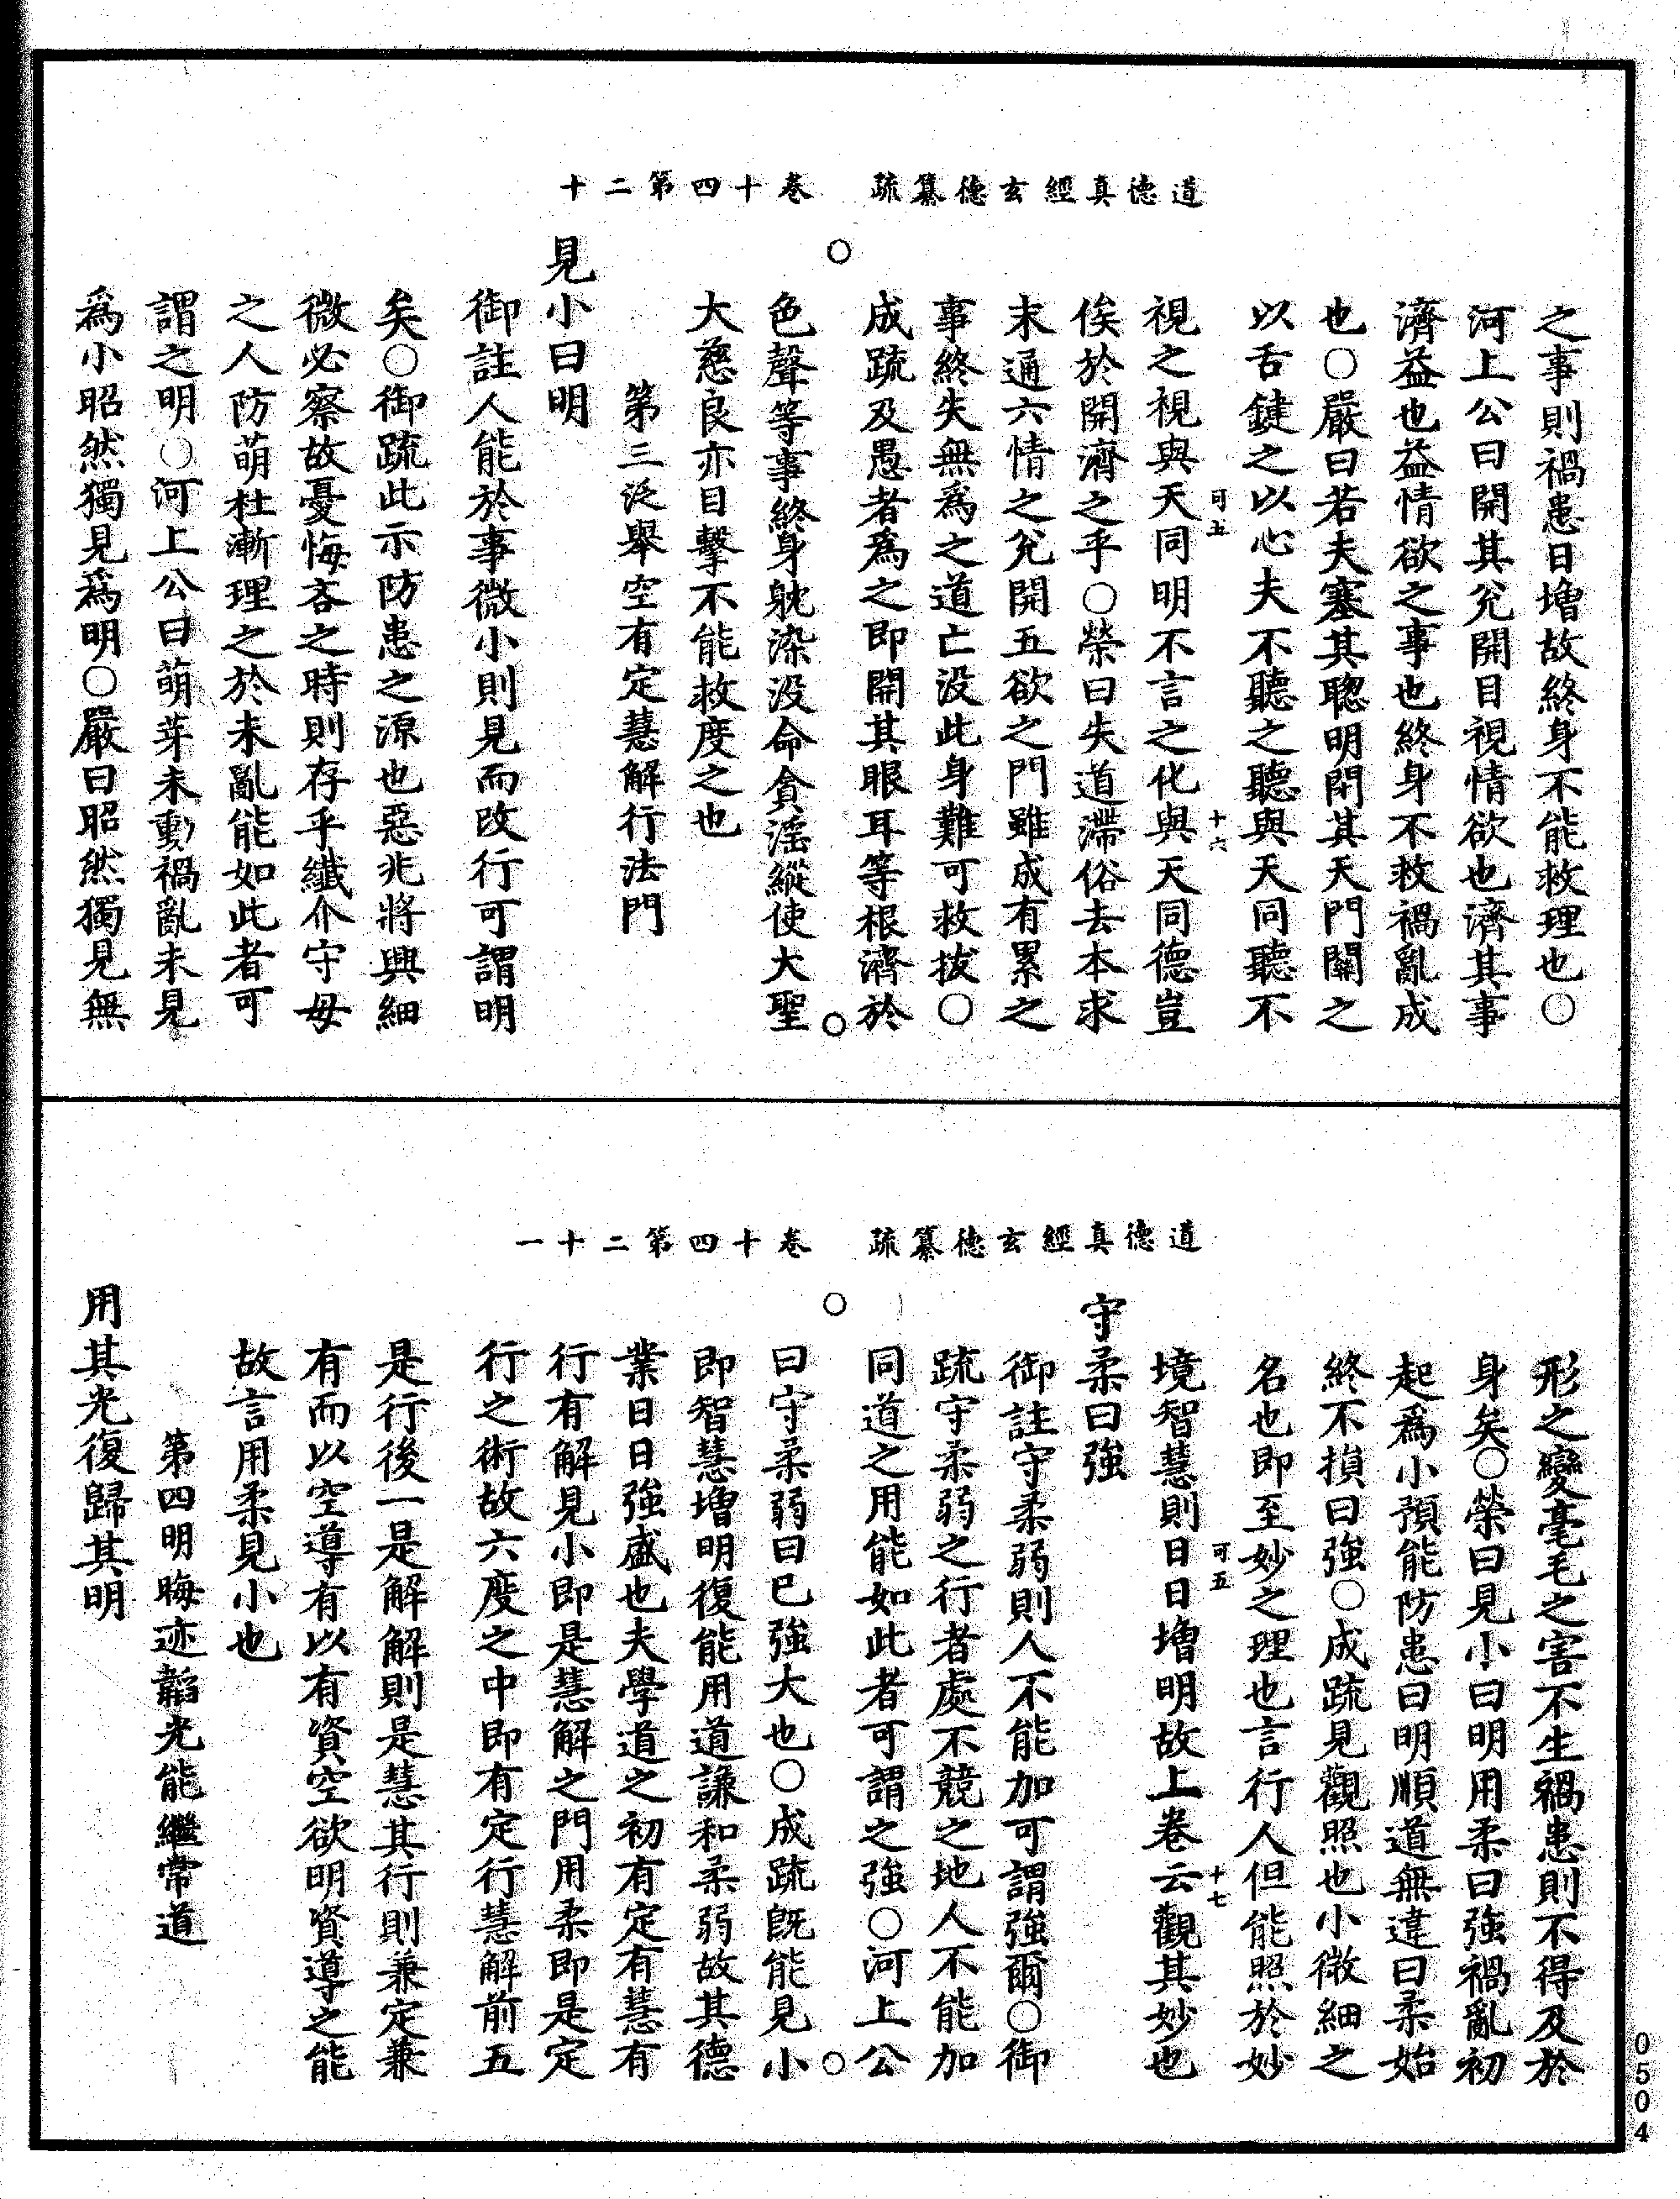 道德真經玄德纂疏　卷十四第二十
之事則禍患日增故終身不能救理也○
河上公曰開其兌開目視情欲也濟其事
濟益也益情欲之事也終身不救禍亂成
也○嚴曰若夫塞其聰明閉其天門關之
以舌鍵之以心夫不聽之聽與天同聽不
可五　十六
視之視與天同明不言之化與天同德豈
俟於開濟之乎○榮曰失道滯俗去本求
末通六情之兌開五欲之門雖成有累之
事終失無為之道亡沒此身難可救拔○
成疏及愚者為之即開其眼耳等根濟於
色聲等事終身躭染沒命貪滛縱使大聖
大慈良亦目擊不能救度之也
第三泛舉空有定慧解行法門
見小曰明
御註人能於事微小則見而改行可謂明
矣○御疏此示防患之源也惡兆將興細
微必察故憂悔吝之時則存乎纖介守母
之人防萌杜漸理之於未亂能如此者可
謂之明○河上公曰萌芽未動禍亂未見
為小昭然獨見為明○嚴曰昭然獨見無
道德真經玄德纂疏　卷十四第二十一
形之變毫毛之害不生禍患則不得及於
身矣○榮曰見小曰明用柔曰強禍亂初
起為小預能防患曰明順道無違曰柔始
終不損曰強○成疏見觀照也小微細之
名也即至妙之理也言行人但能照於妙
可五　十七
境智慧則日日增明故上卷云觀其妙也
守柔曰強
御註守柔弱則人不能加可謂強爾○御
疏守柔弱之行者處不競之地人不能加
同道之用能如此者可謂之強○河上公
曰守柔弱曰巳強大也○成疏既能見小
即智慧增明復能用道謙和柔弱故其德
業日日強盛也夫學道之初有定有慧有
行有解見小即是慧解之門用柔即是定
行之術故六度之中即有定行慧解前五
是行後一是解解則是慧其行則兼定兼
有而以空導有以有資空欲明資導之能
故言用柔見小也
第四明晦迹韜光能繼常道
用其光復歸其明
0504